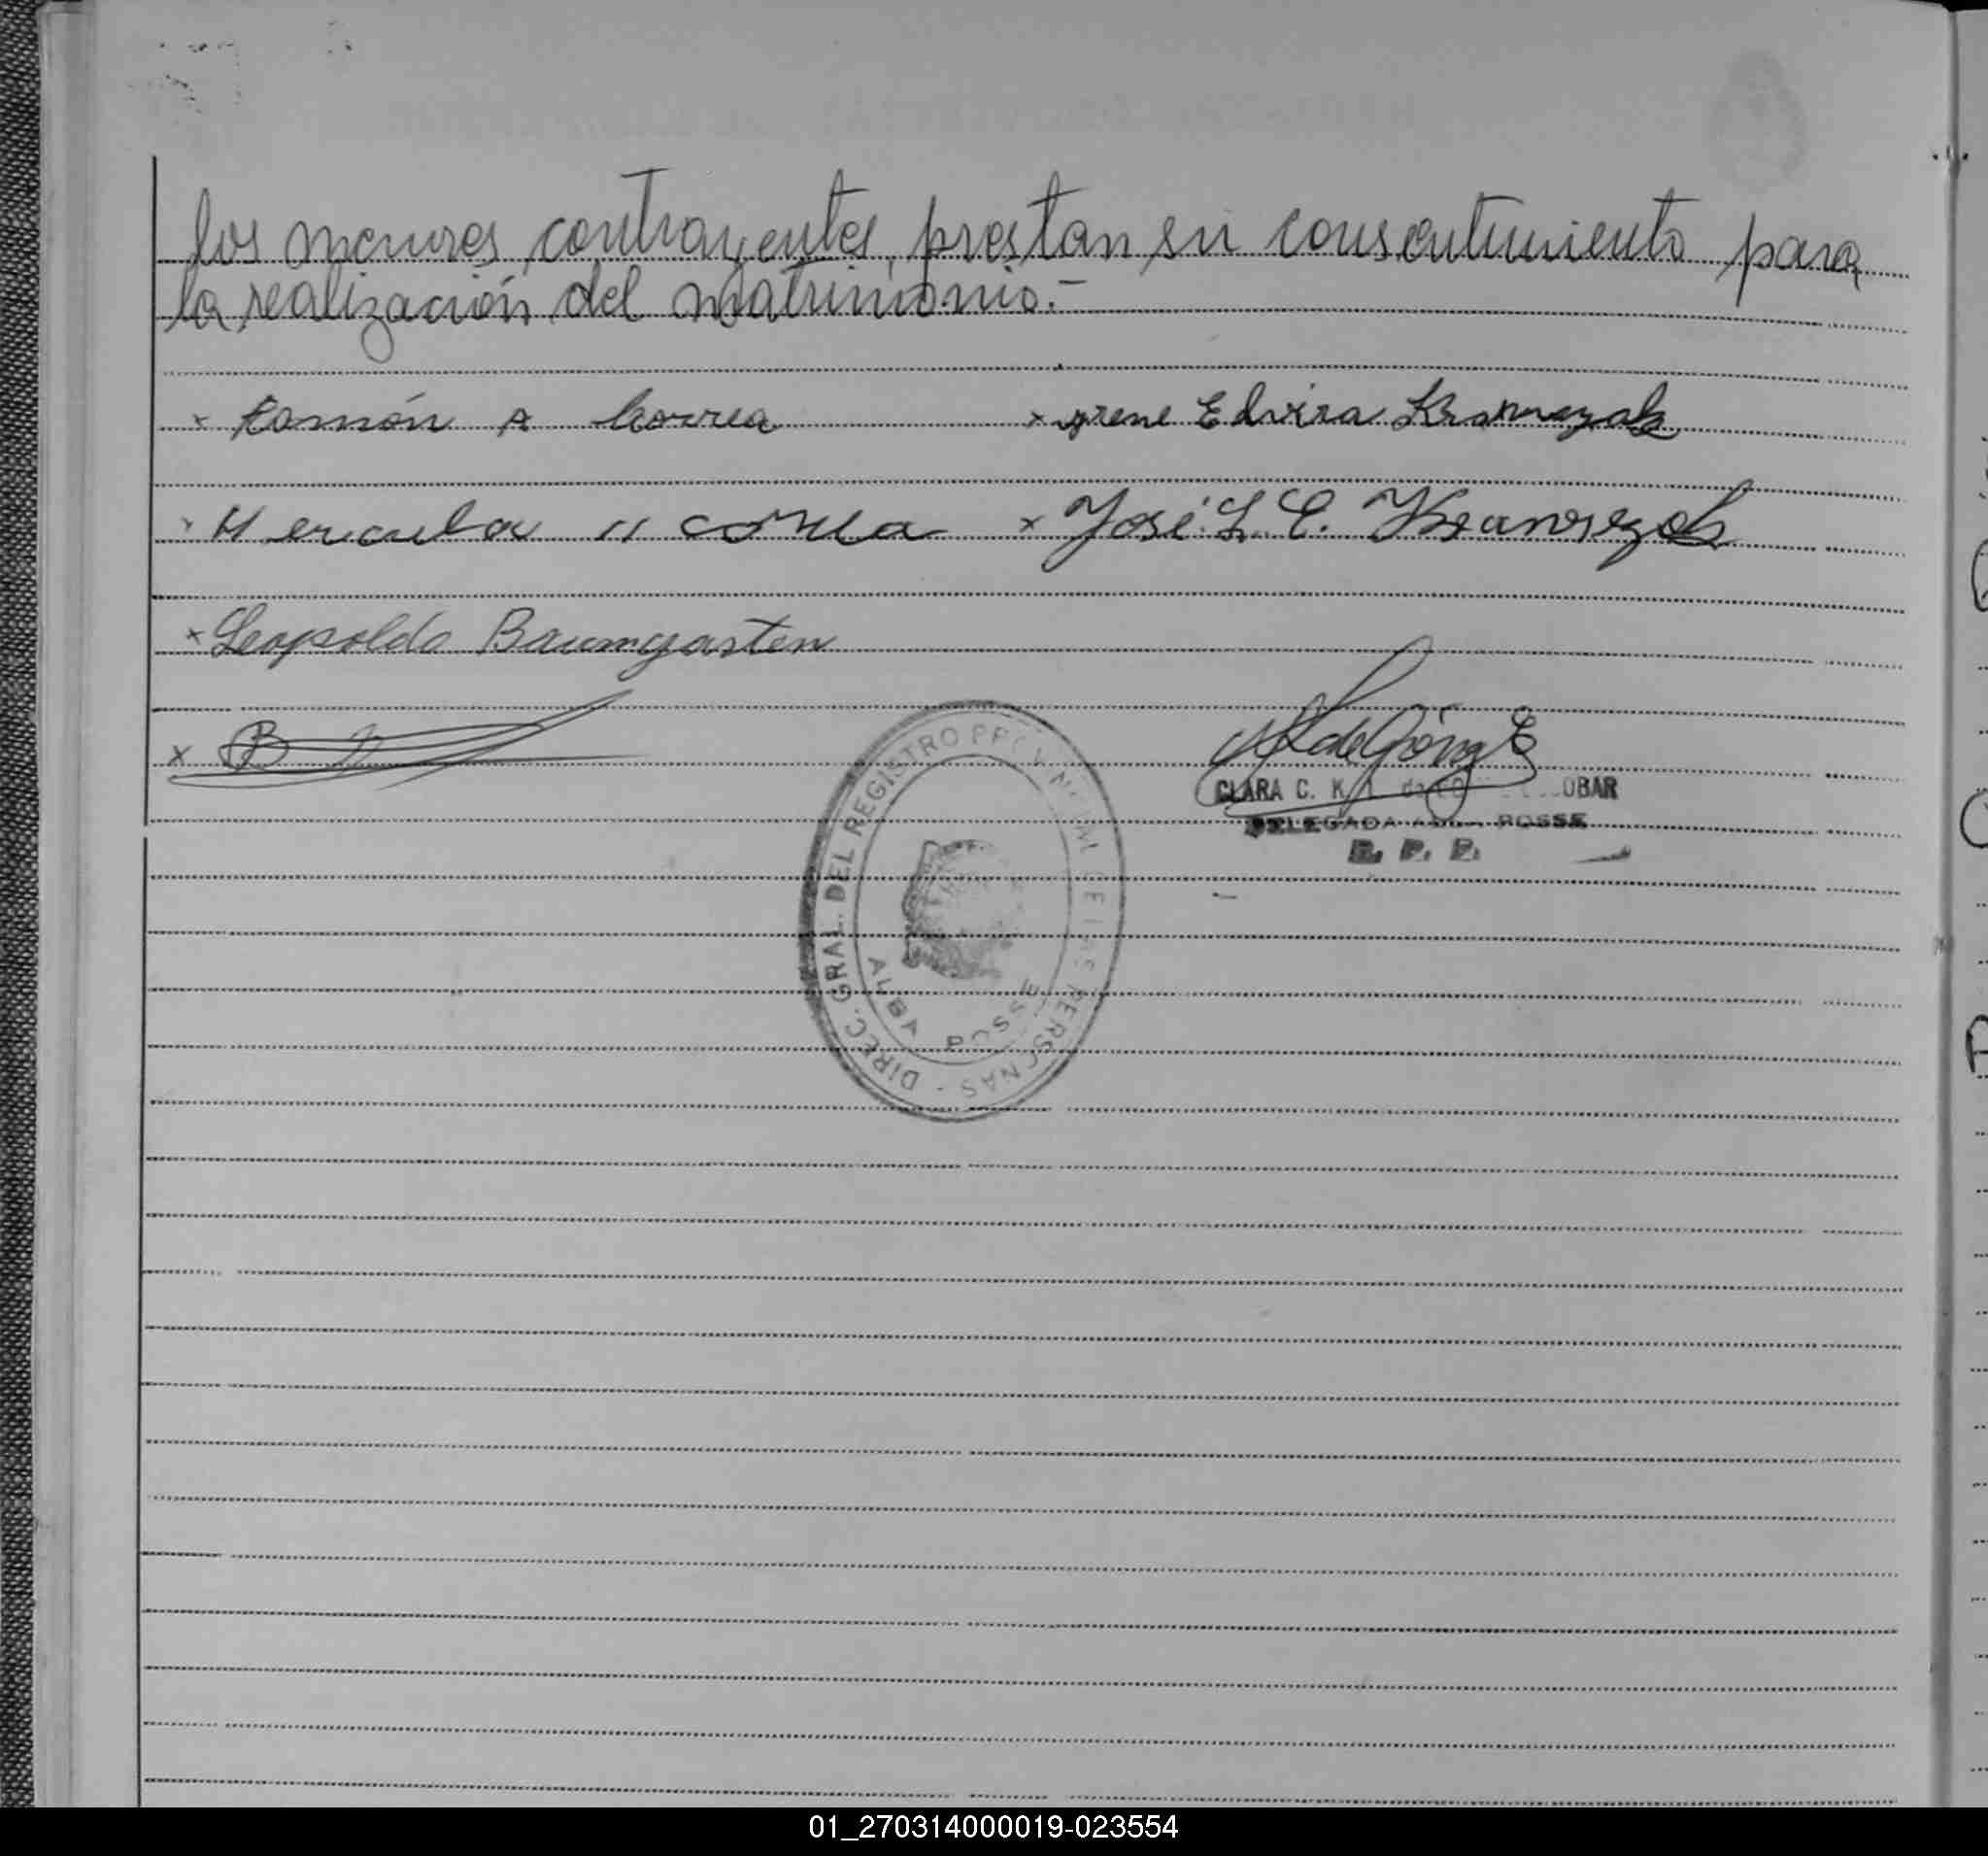 los menores contrayentes, prestan su consentimiento para
la realización del matrimonio.-
x Ramón A Correa
x Irene Elvira Krawczak
x H ercula n correa
x José L. C. Krawczak
x Leopoldo Baumgarten
x B
CLARA C. K. de OBAR
DELEGADA ALBA POSSE
R. P. P.
DIREC. GRAL. DEL REGISTRO PROVINCIAL DE LAS PERSONAS -
ALBA POSSE
01_270314000019-023554